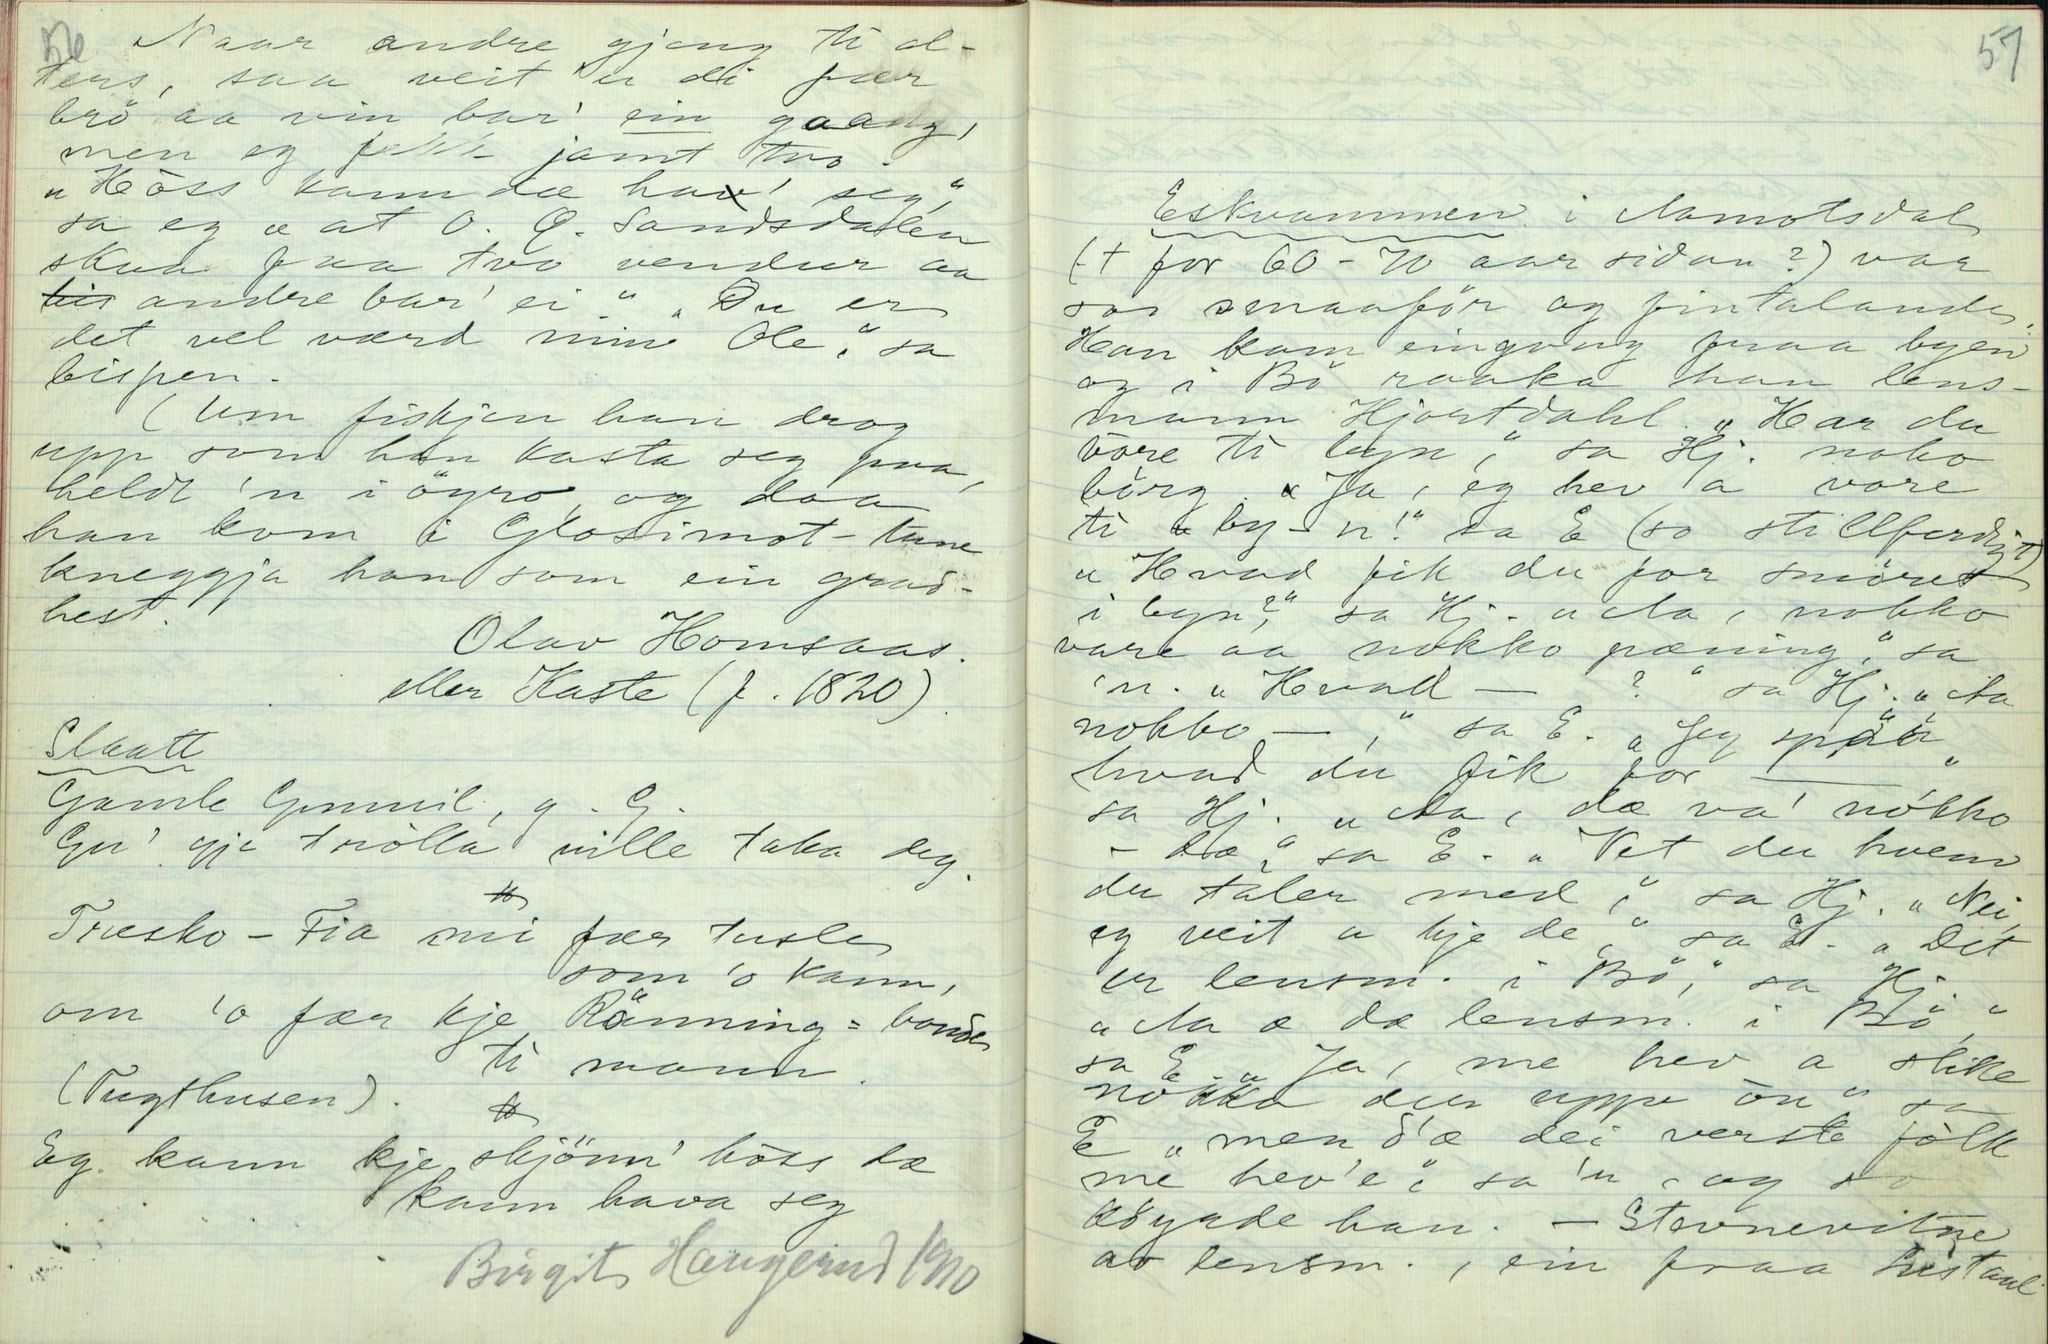 56
Naar andre gjeng ti al-
ters, saa veit 'u di fær
brö aa vin bar' ein gaang,
men eg fekk jamt tvo.
"Höss kann dæ hav' seg,"
sa eg "at O. O. Sandsdalen
skua faa tvo vendur aa
andre bar' ei". "Du er
det vel værd min Ole", sa
bispen.
(Um fiskjen han drog
upp som han kasta seg paa,
heldt 'n i ögro, og daa
han kom i Glosimot-tune
kneggja han som ein grad-
hest.
Olav Homsaas.
eller Kaste (f. 1820).
Slaatt
Gamle Gunnil, g. G.
Gu' gje trölla ville taka deg.
Træsko-Fia mi fær tusle
som 'o kann,
om 'o fær kje Rönning=bonde
ti mann.
(Tugthusen).
Eg kann kje skjönn' höss dæ
kann hava seg
Birgit Haugerud 1910
57
Eskvammen i Aamotsdal
(+ for 60-70 aar sidan?) var
so smaaför og fintalande.
Han kom eingong fraa byen
og i Bö raaka han lens-
mann Hjortdahl. "Har du
vöre ti byn", sa Hj. noko
börg. "Ja, eg hev a vore
ti by-n!" sa E (so stillferdigt)
"Hvad fik du for smöret
i byn?", sa Hj. "Aa, nokko
vare aa nokko pæning," sa
'n. "Hvad — ?" sa Hj. "Aa
nokko —," sa E. "Jeg spör
hvad du fik for —"
sa Hj. "Aa, dæ va' nokko
- dæ", sa E. "Vet du hvem
du taler med", sa Hj. "Nei,
eg veit a kje de," sa E. "Det
er lensm. i Bö", sa Hj.
"Aa æ dæ lensm. i Bö",
sa E. "Ja, me hev a slike
nokka der uppe òn" sa
E "men d'æ dei verste folk
me hev'e", sa 'n, og so
döyade han. — Stevnevitne
av lensm., ein fraa